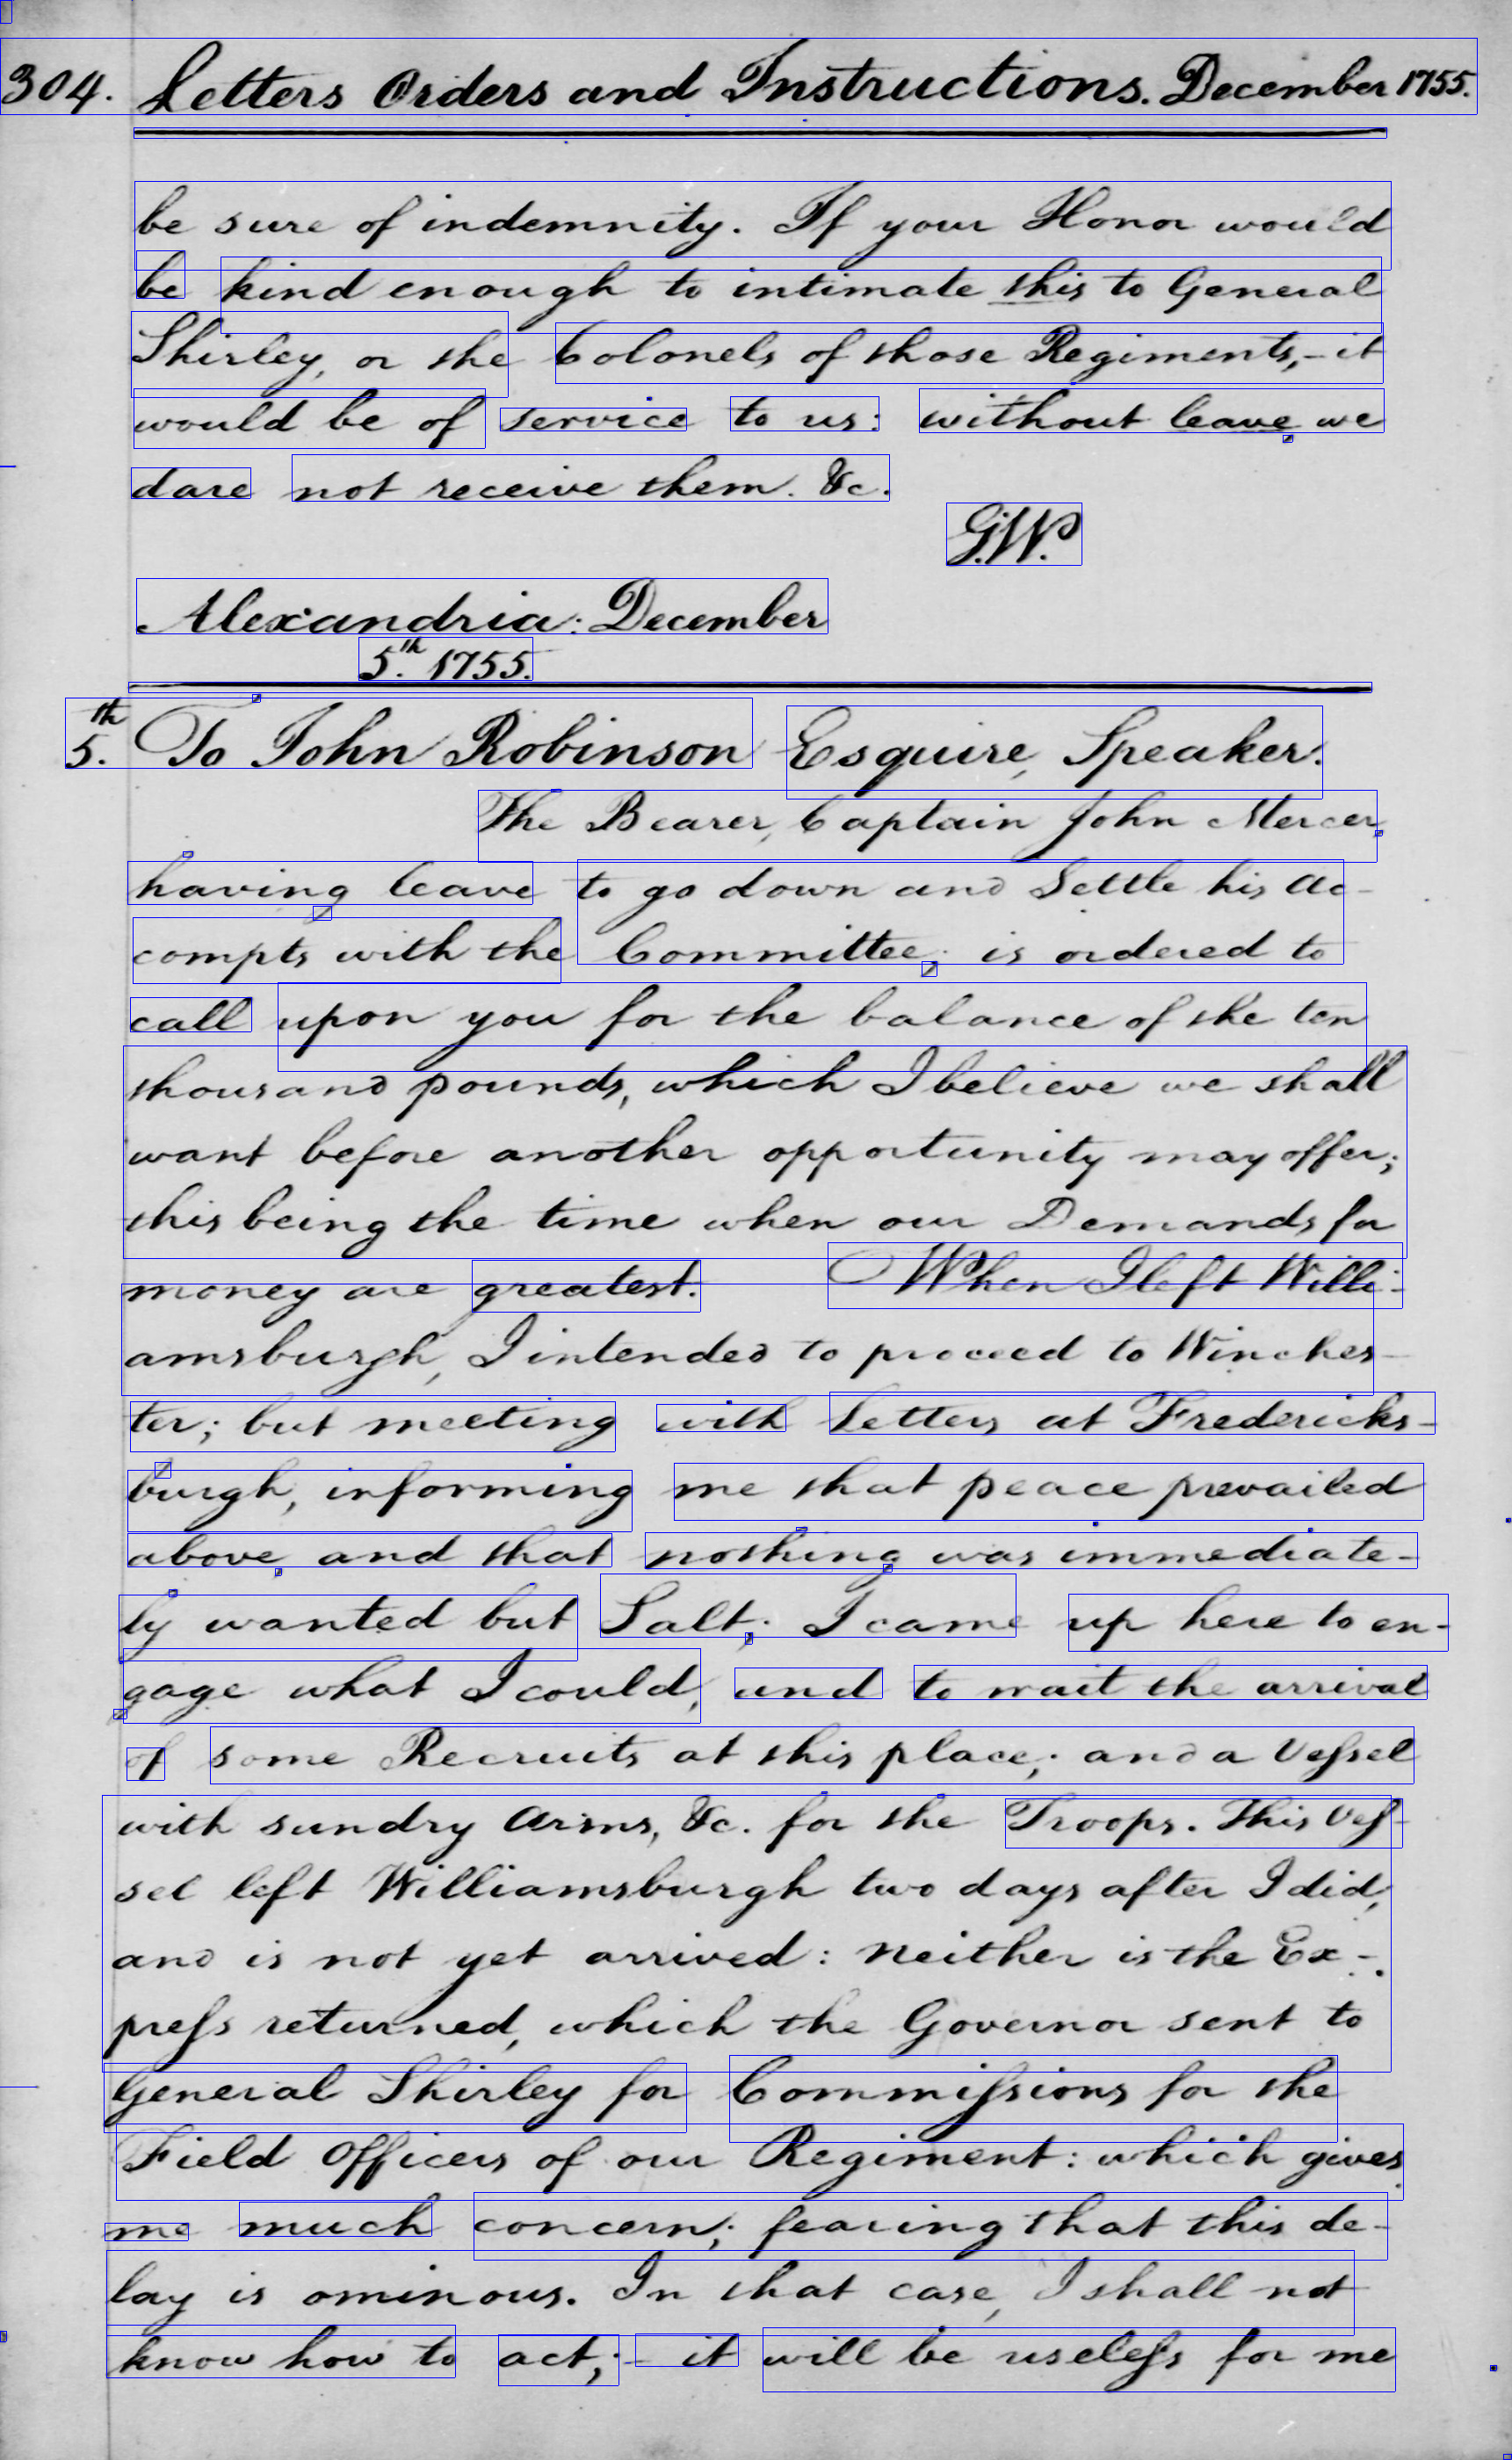 304. Letters Orders and Instructions. December 1755.
be sure of indemnity. If your Honor would
be kind enough to intimate this to General
Shirley, or the Colonels of those Regiments, - it
would be of service to us: without leave we
dare not receive them. &c.
G.W.
Alexandria: December
5th. 1755.
5th. To John Robinson Esquire, Speaker.
The Bearer, Captain John Mercer,
having leave to go down and Settle his Ac-
compts with the Committee; is ordered to
call upon you for the balance of the ten
thousand pounds, which I believe we shall
want before another opportunity may offer;
this being the time when our Demands for
money are greatest. When I left Willi-
amsburgh, I intended to proceed to Winches-
ter; but meeting with Letters at Fredericks-
burgh, informing me that peace prevailed
above, and that nothing was immediate-
ly wanted but Salt; I came up here to en-
gage what I could, and to wait the arrival
of some Recruits at this place; and a Vessel
with sundry Arms, &c. for the Troops. This Ves-
sel left Williamsburgh two days after I did,
and is not yet arrived: neither is the Ex-
press returned, which the Governor sent to
General Shirley for Commissions for the
Field Officers of our Regiment: which gives
me much concern; fearing that this de-
lay is ominous. In that case, I shall not
know how to act; - it will be useless for me